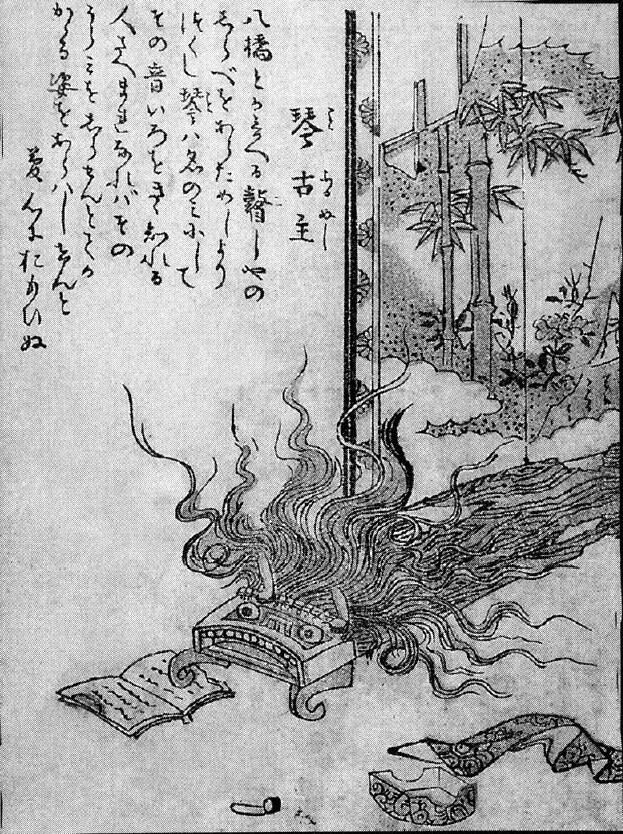 琴古主
八橋とか言へる瞽しやの
しらべをあらためしより
つくし琴ハ名のミにして
その音いろをきゝ知れる
人さへまれなれバその
うらミをしらせんとてか
かゝる姿をあらハしけんと
夢心におもひぬ